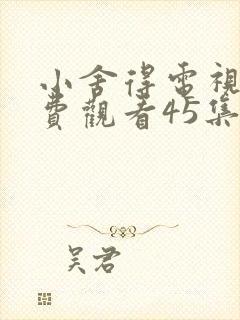 小舍得電視
費觀看45集
吴君